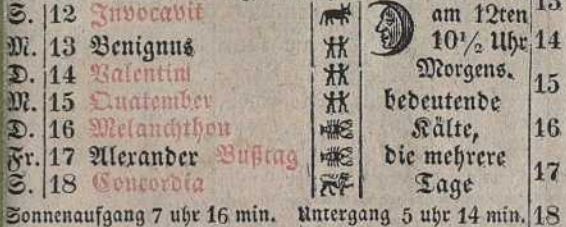 S. 12 Invocavit am 12ten 13
M. 13 Benignus 10 1/2 Uhr 14
D. 14 Valentini Morgens.
M. 15 Quatember bedeutende 15
D. 16 Melanchthon Kälte, 16
Fr. 17 Alexander Bußtag die mehrere
S. 18 Concordia Tage 17
Sonnenaufgang 7 uhr 16 min. Untergang 5 uhr 14 min. 18